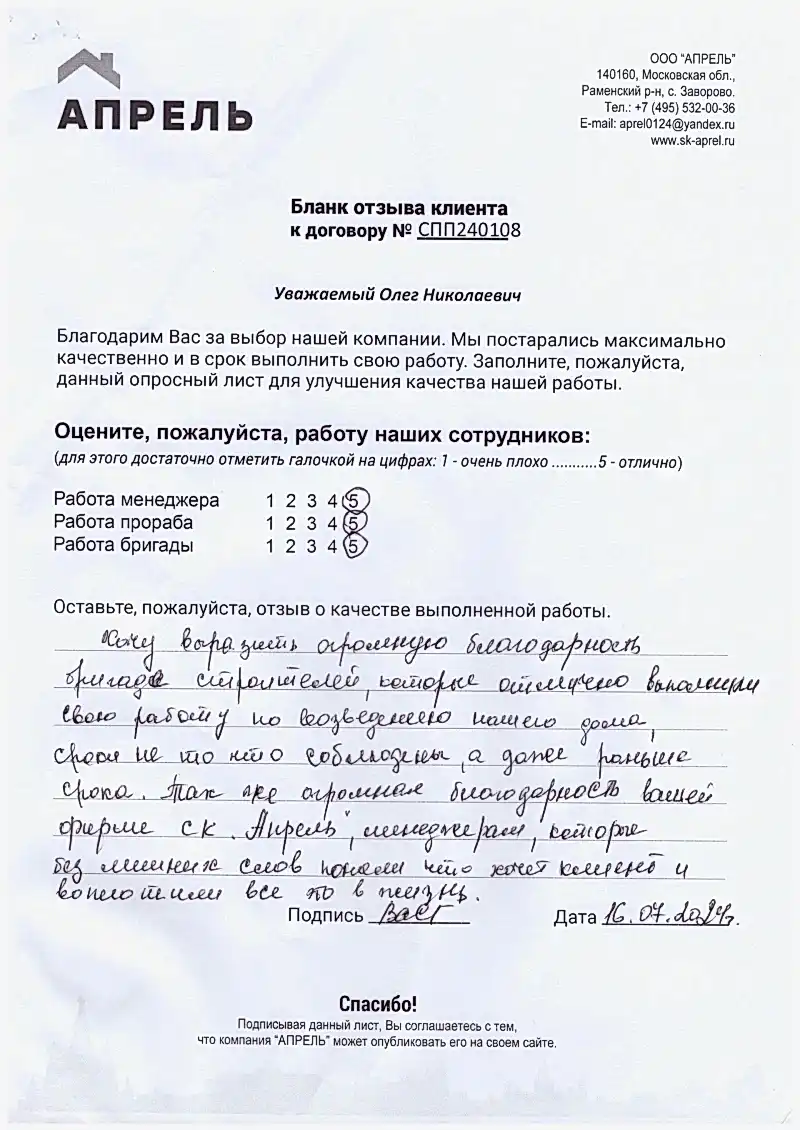 АПРЕЛЬ
ООО "АПРЕЛЬ"
140160, Московская обл.,
Раменский р-н, с. Заворово.
Тел.: +7 (495) 532-00-36
E-mail: aprel0124@yandex.ru
www.sk-aprel.ru
Бланк отзыва клиента
к договору № СПП240108
Уважаемый Олег Николаевич
Благодарим Вас за выбор нашей компании. Мы постарались максимально
качественно и в срок выполнить свою работу. Заполните, пожалуйста,
данный опросный лист для улучшения качества нашей работы.
Оцените, пожалуйста, работу наших сотрудников:
(для этого достаточно отметить галочкой на цифрах: 1 - очень плохо ...........5 - отлично)
Работа менеджера 1 2 3 4 5
Работа прораба 1 2 3 4 5
Работа бригады 1 2 3 4 5
Оставьте, пожалуйста, отзыв о качестве выполненной работы.
Хочу выразить огромную благодарность
бригаде строителей, которые отлично выполнили
свою работу по возведению нашего дома,
сроки не то что соблюдены, а даже раньше
срока. Так же огромная благодарность вашей
фирме СК "Апрель", менеджерам, которые
без лишних слов поняли что хочет клиент и
воплотили все это в жизнь.
Подпись Дата 16.07.2024г.
Спасибо!
Подписывая данный лист, Вы соглашаетесь с тем,
что компания "АПРЕЛЬ" может опубликовать его на своем сайте.